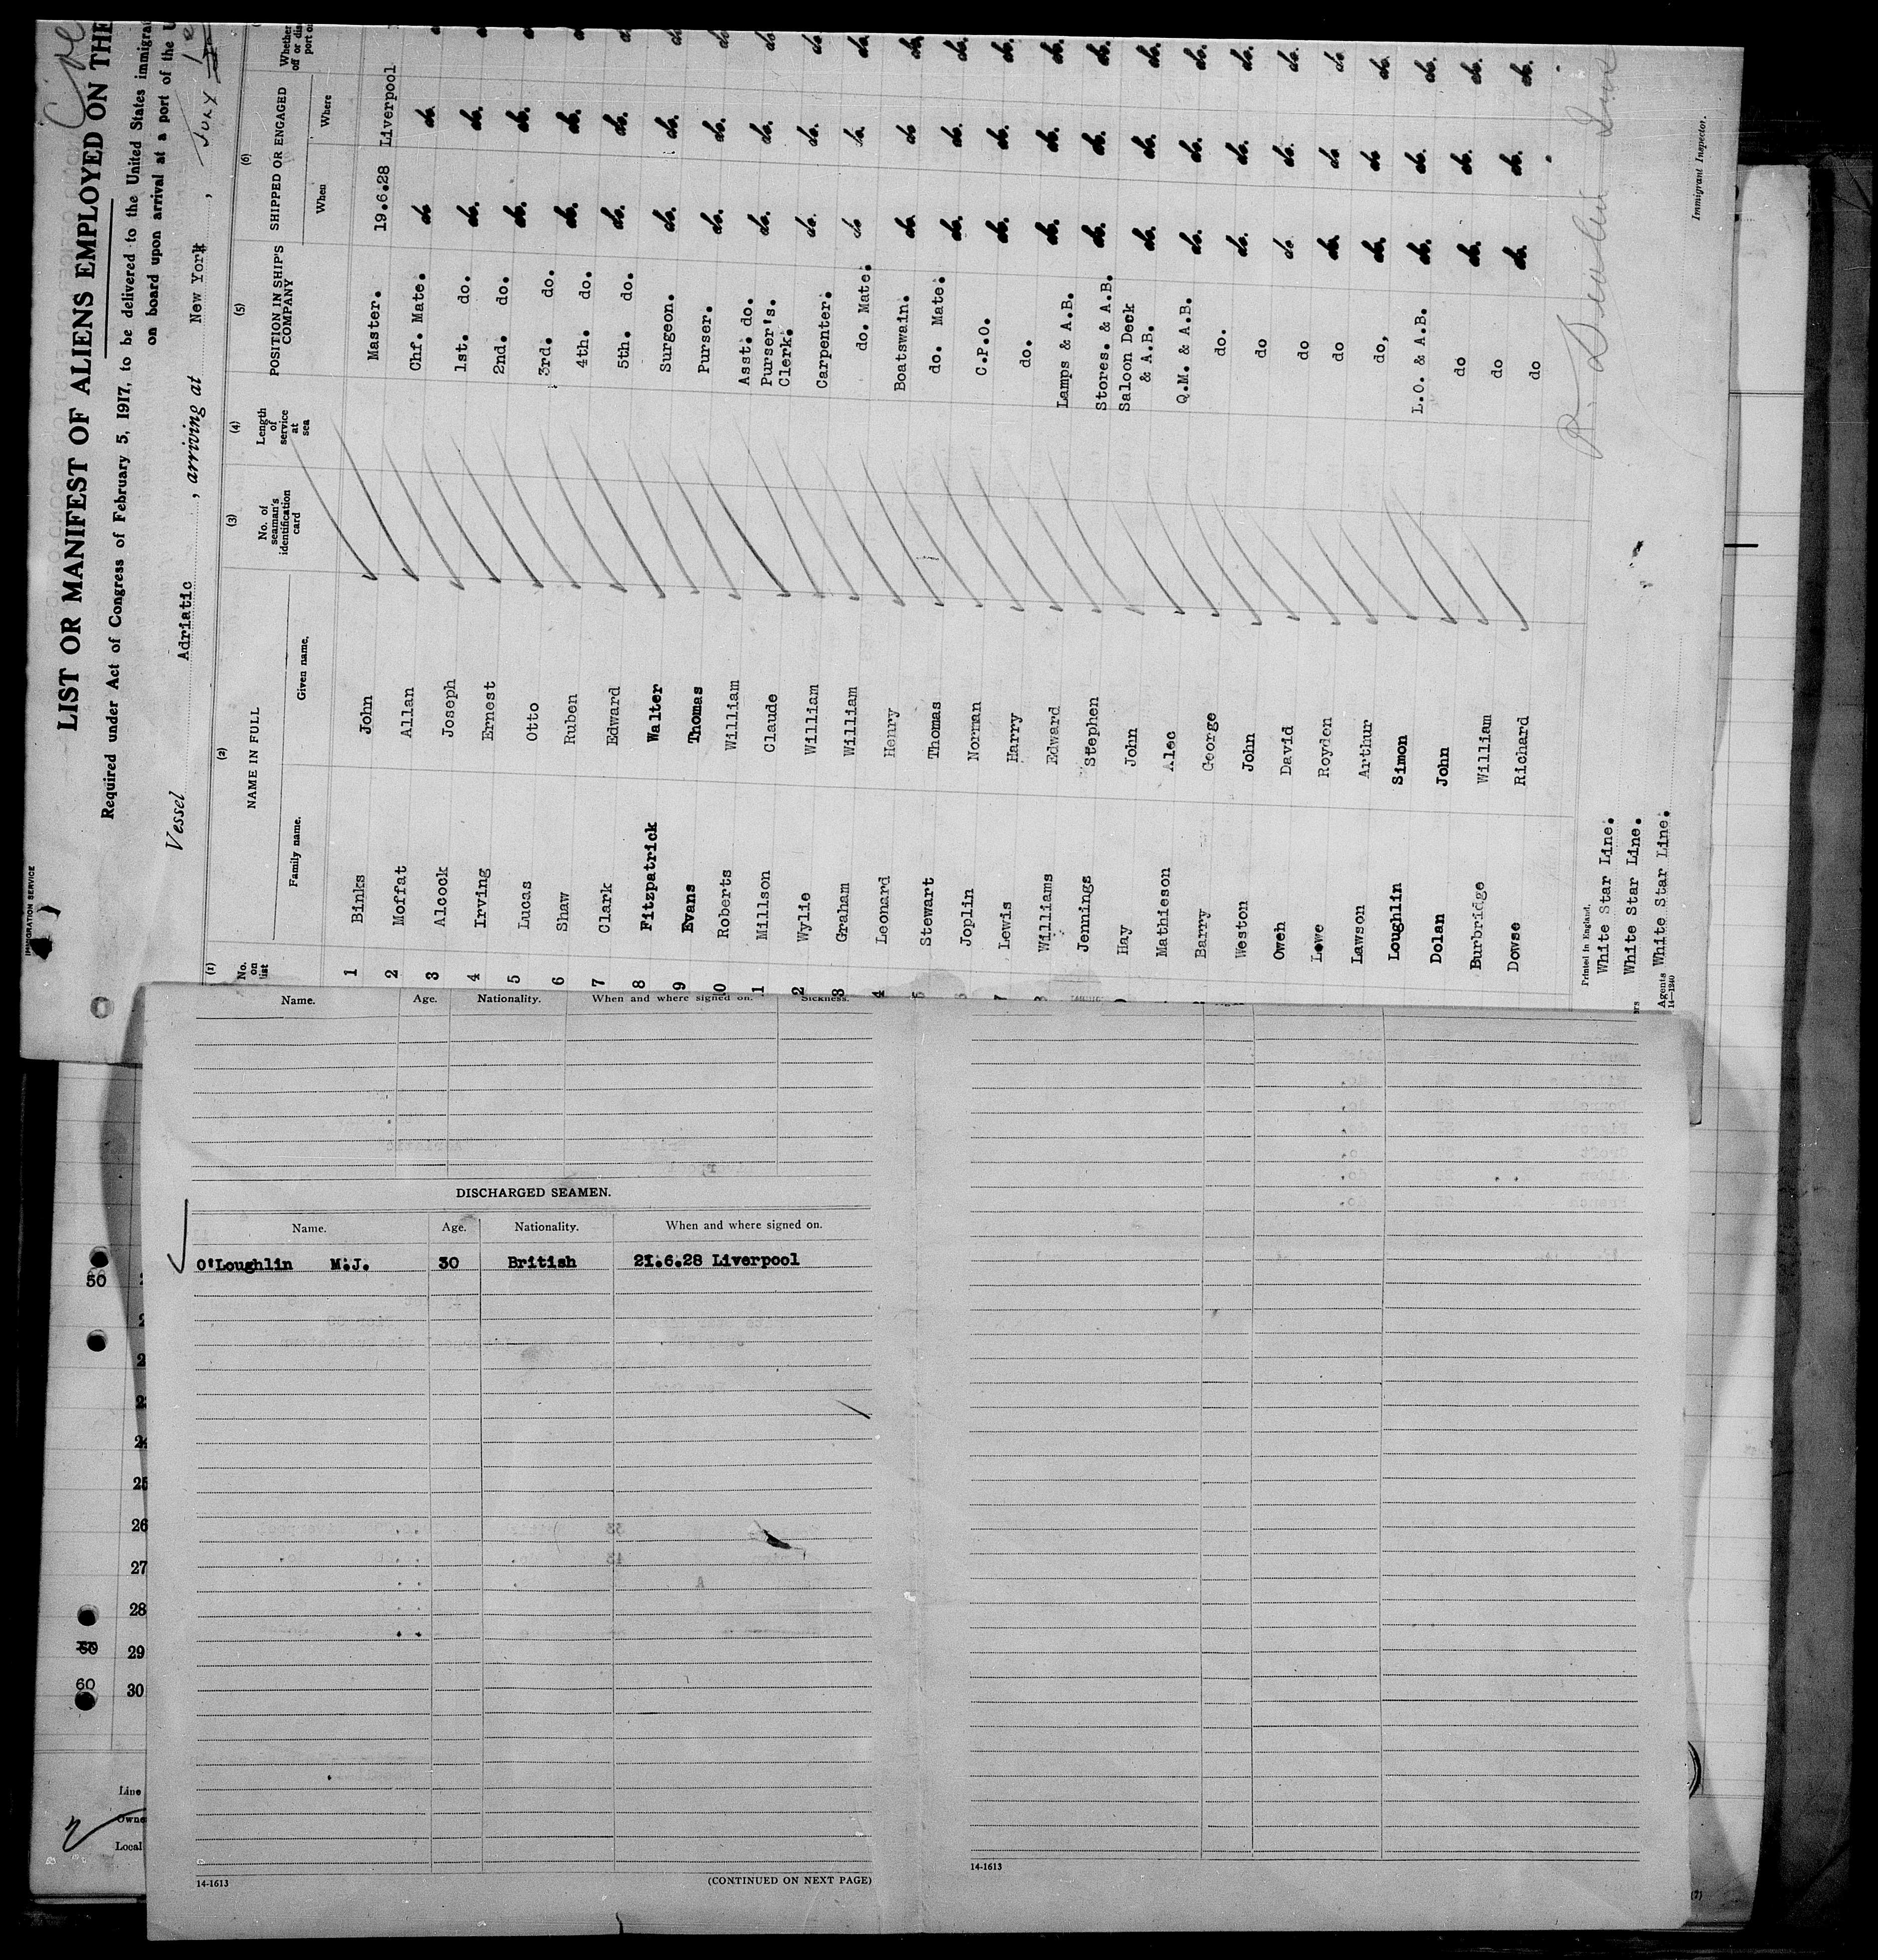 IMMIGRATION SERVICE
LIST OR MANIFEST OF ALIENS EMPLOYED ON THE
Required under Act of Congress of February 5, 1917, to be delivered to the United States immigra
on board upon arrival at a port of the U
Vessel Adriatic , arriving at New York ,
(1) (2) (3) (4) (5) (6)
No. on list NAME IN FULL No. of seaman's identification card Length of service at sea POSITION IN SHIP'S COMPANY SHIPPED OR ENGAGED
Family name. Given name. When Where
1 Binks John Master. 19.6.28 Liverpool
2 Moffat Allan Chf. Mate. do do.
3 Alcock Joseph 1st. do. do. do.
4 Irving Ernest 2nd. do. do. do.
5 Lucas Otto 3rd. do. do. do.
6 Shaw Ruben 4th. do. do. do.
7 Clark Edward 5th. do. do. do.
8 Fitzpatrick Walter Surgeon. do. do.
9 Evans Thomas Purser. do. do.
10 Roberts William Asst. do. do. do.
1 Millson Claude Purser's. Clerk. do. do.
2 Wylie William Carpenter. do. do.
3 Graham William do. Mate. do do.
4 Leonard Henry Boatswain. do. do
Stewart Thomas do. Mate. do. do.
Joplin Norman C.P.O. do. do.
Lewis Harry do. do. do.
Williams Edward Lamps & A.B. do. do.
Jennings Stephen Stores. & A.B. do. do.
Hay John Saloon Deck & A.B. do. do.
Mathieson Alec Q.M. & A.B. do. do.
Barry George do. do. do.
Weston John do do do.
Owen David do do. do
Lowe Royden do do. do
Lawson Arthur do, do. do.
Loughlin Simon L.O. & A.B. do. do.
Dolan John do do. do.
Burbridge William do do. do.
Dowse Richard do
Printed in England.
White Star Line.
White Star Line.
Agents White Star Line.
14—1240
Immigrant Inspector.
Name. Age. Nationality. When and where signed on. Sickness.
DISCHARGED SEAMEN.
Name. Age. Nationality. When and where signed on.
O'Loughlin M.J. 30 British 21.6.28 Liverpool
14-1613 (CONTINUED ON NEXT PAGE)
14-1613
24
25
26
27
28
29
60 30
Line
Owne
Local